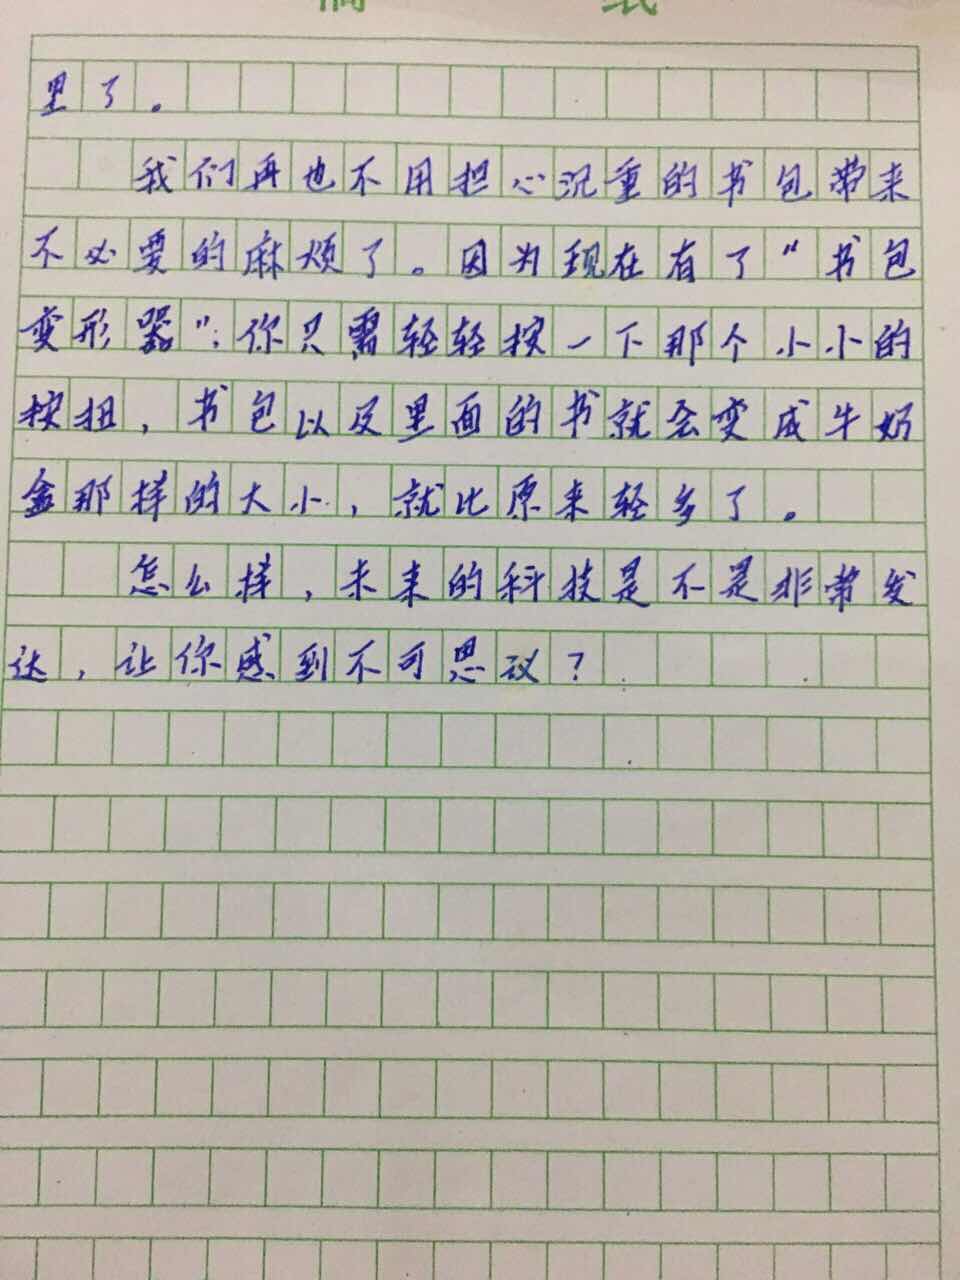 纸
里了。
我们再也不用担心沉重的书包带来
不必要的麻烦了。因为现在有了“书包
变形器”:你只需轻轻按一下那个小小的
按扭,书包以及里面的书就会变成牛奶
盒那样的大小,就比原来轻多了。
怎么样,未来的科技是不是非常发
达,让你感到不可思议?